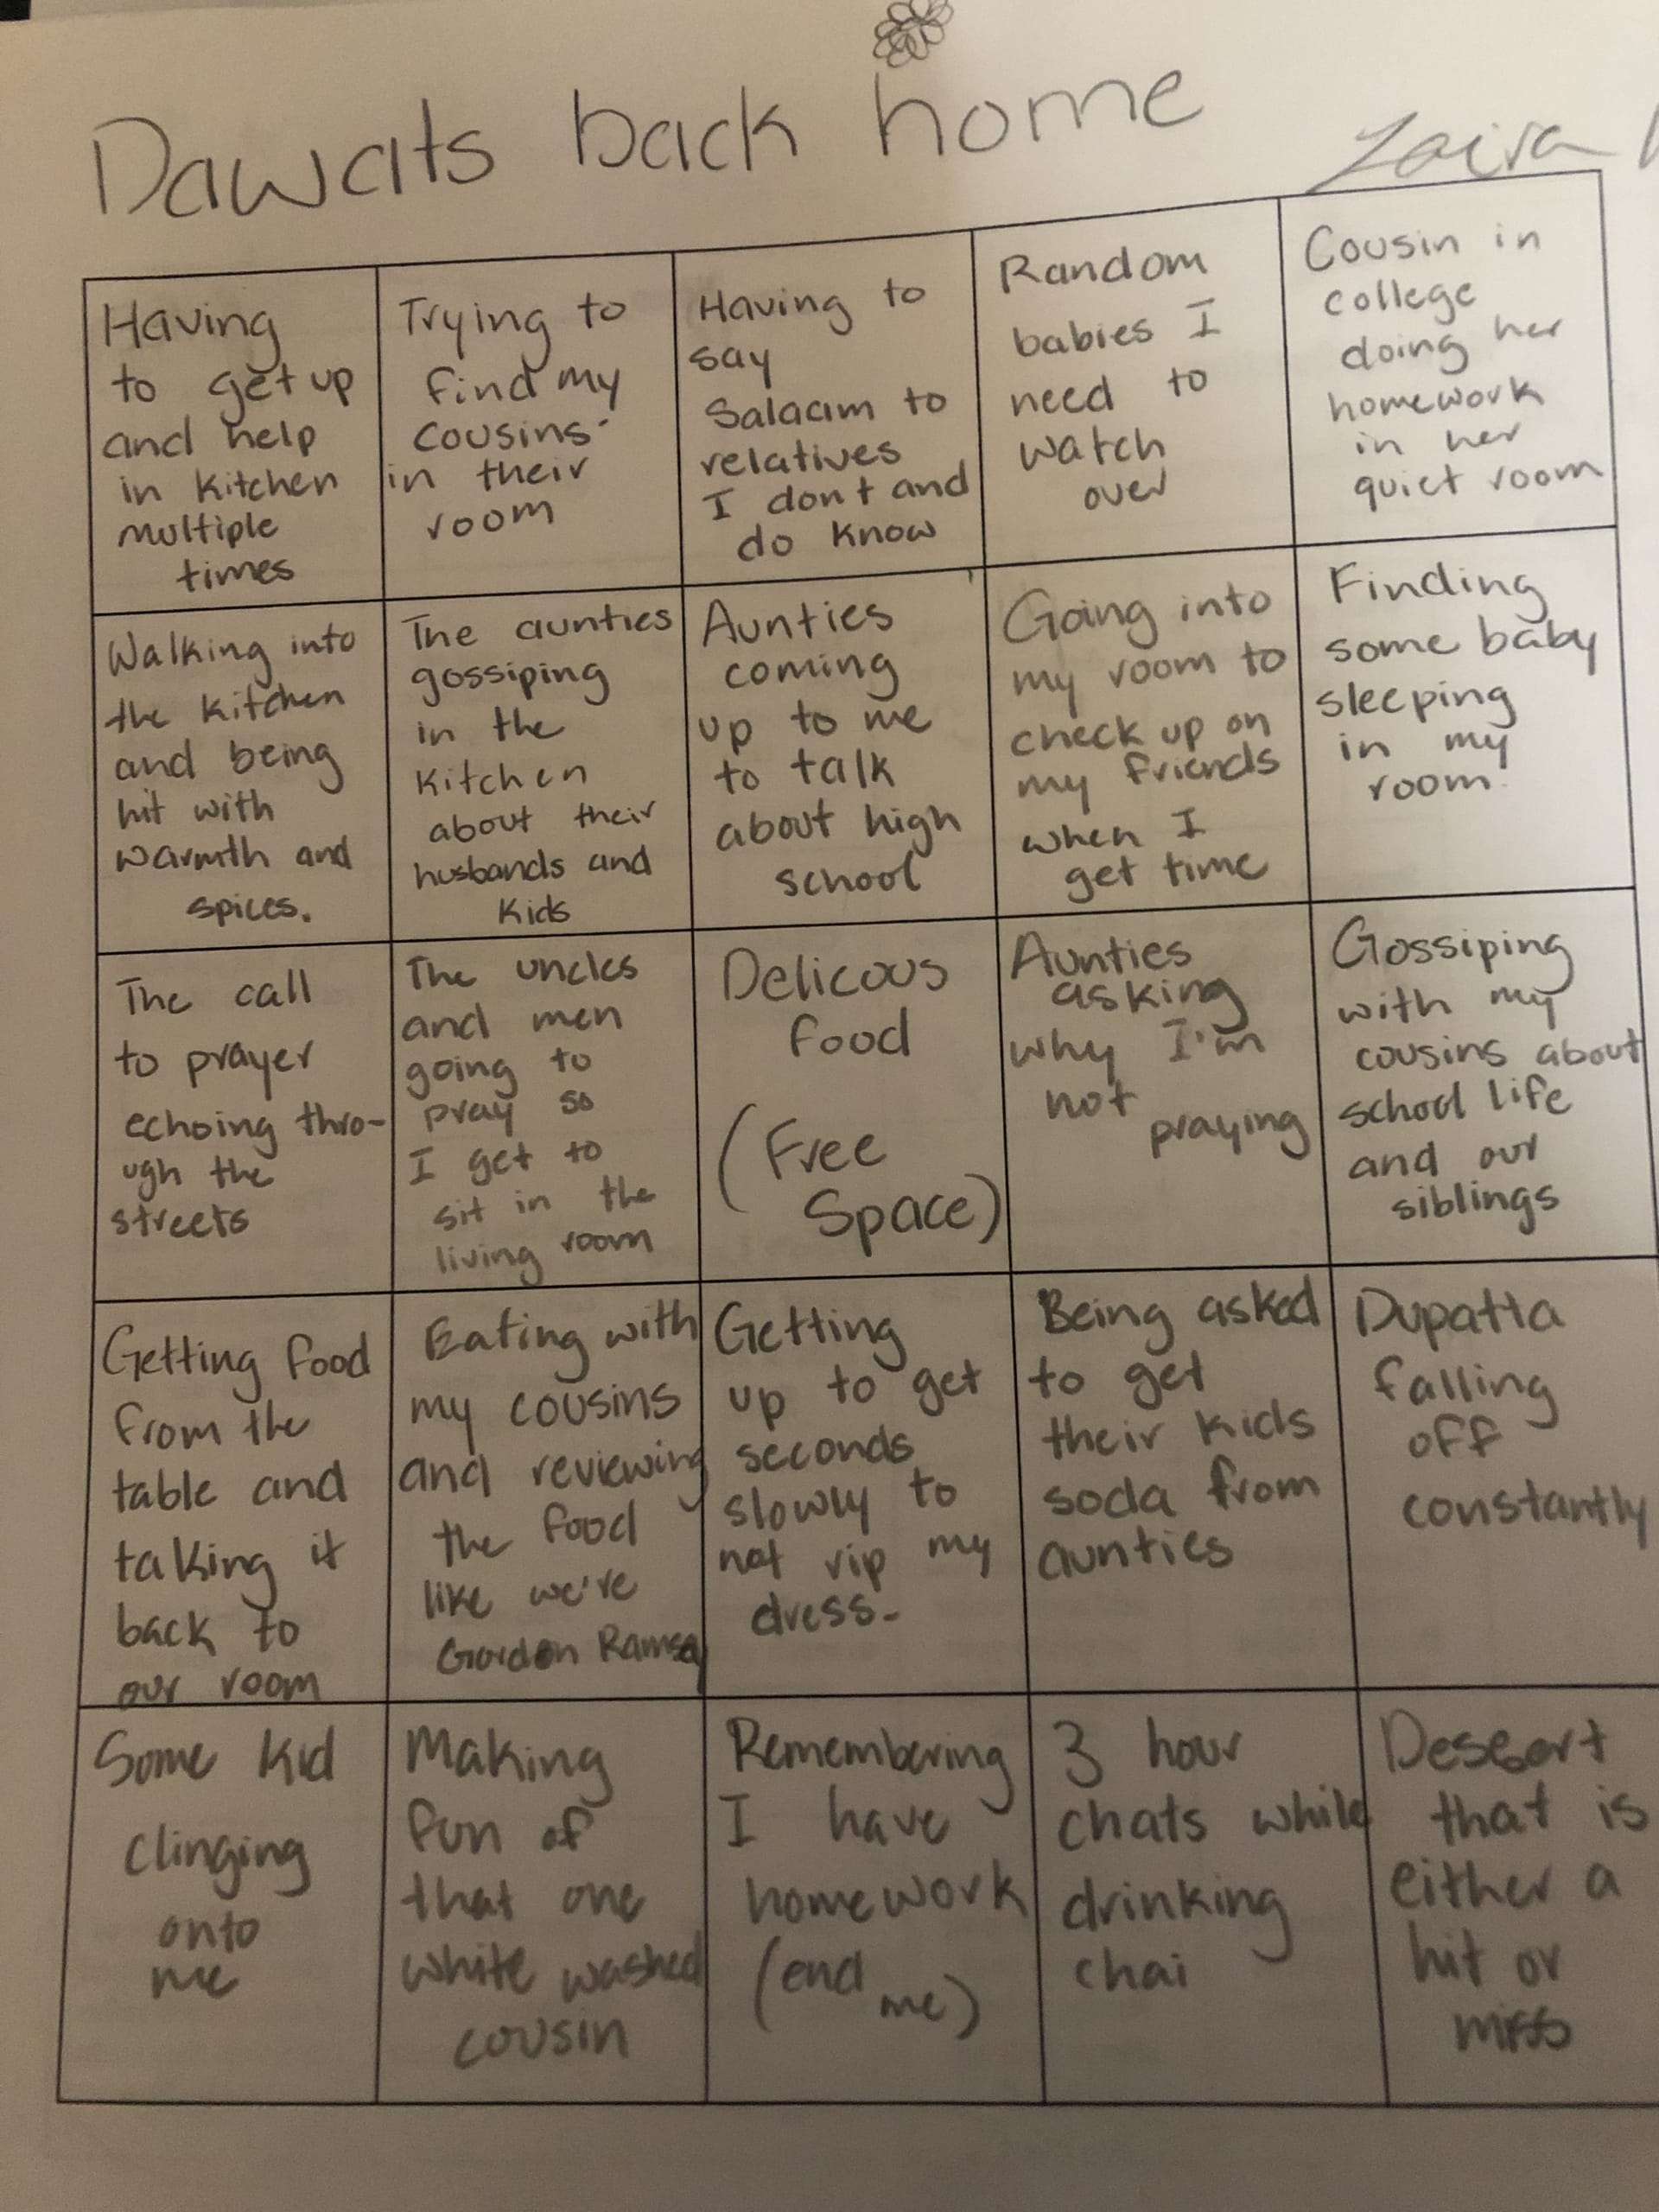 Dawats back home
Zaira
Having
to get up
and help
in kitchen
multiple
times
Trying to
find my
cousins
in their
room
Having to
say
Salaam to
relatives
I don't and
do know
Random
babies I
need to
watch
over
Cousin in
college
doing her
homework
in her
quiet room
Walking into
the kitchen
and being
hit with
warmth and
spices.
The aunties
gossiping
in the
kitchen
about their
husbands and
kids
Aunties
coming
up to me
to talk
about high
school
Going into
my room to
check up on
my friends
when I
get time
Finding
some baby
sleeping
in my
room
The call
to prayer
echoing thro-
ugh the
streets
The uncles
and men
going to
pray so
I get to
sit in the
living room
Delicous
food
(Free
Space)
Aunties
asking
why I'm
not
praying
Gossiping
with my
cousins about
school life
and our
siblings
Getting food
from the
table and
taking it
back to
our room
Eating with
my cousins
and reviewing
the food
like we're
Gordon Ramsay
Getting
up to get
seconds
slowly to
not rip my
dress.
Being asked
to get
their kids
soda from
aunties
Dupatta
falling
off
constantly
Some kid
clinging
onto
me
Making
fun of
that one
white washed
cousin
Remembering
I have
homework
(end
me)
3 hour
chats while
drinking
chai
Dessert
that is
either a
hit or
miss